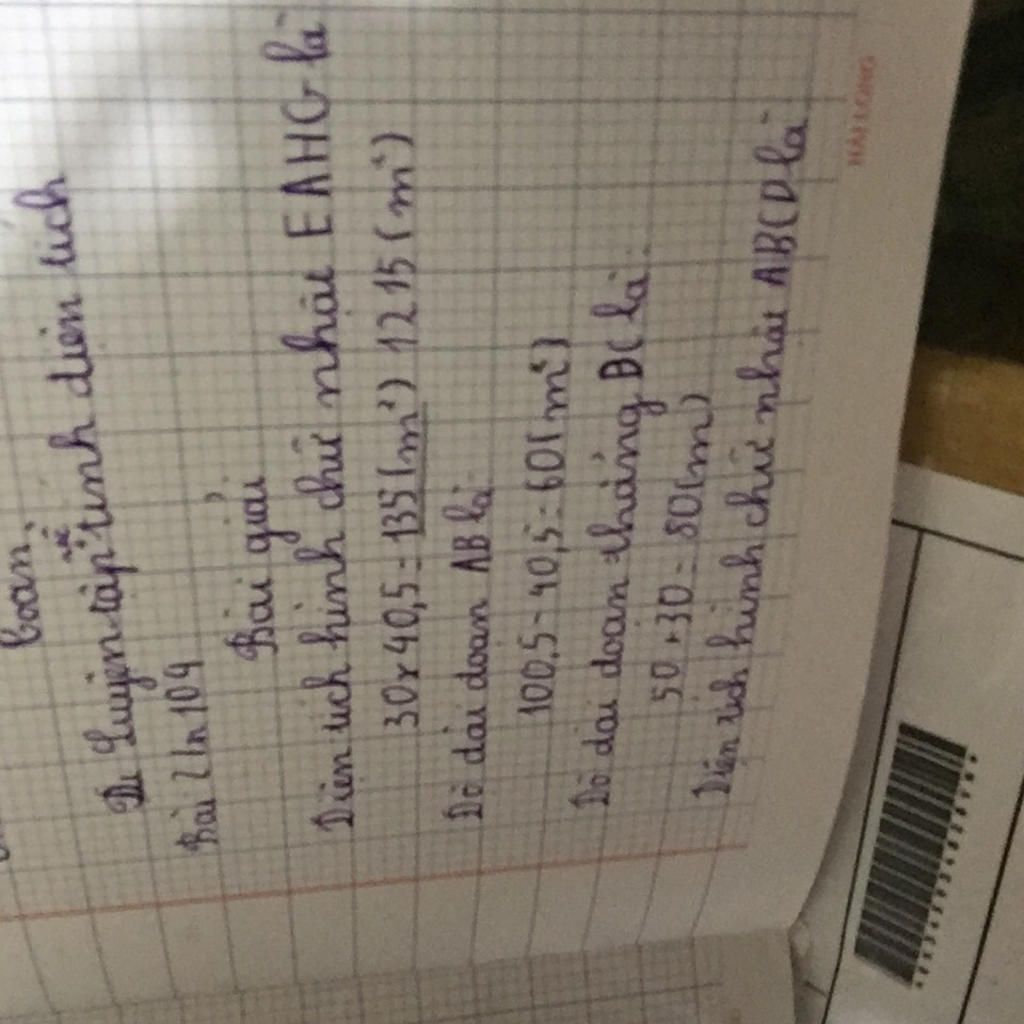 Toán
Luyện tập về tính diện tích
Bài 2 tr 104
Bài giải
Diện tích hình chữ nhật EAHG là
30 x 40,5 = 135 (m²) 1215 (m²)
Độ dài đoạn AB là
100,5 - 40,5 = 60 (m²)
Độ dài đoạn thẳng BC là
50 + 30 = 80 (m)
Diện tích hình chữ nhật ABCD là
HẢI LONG